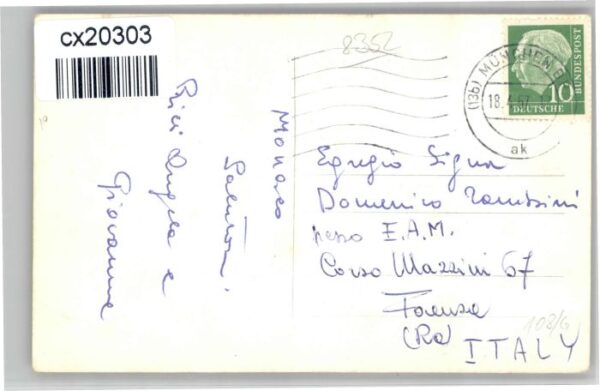 cx20303
8352
(13b) MÜNCHEN
18.4.57
ak
10
DEUTSCHE
BUNDESPOST
Monaco
Saluti
Angela e
Giovanna
Egregio Signor
Domenico
presso E.A.M.
Corso Mazzini 67
Faenza
(Ra)
ITALY